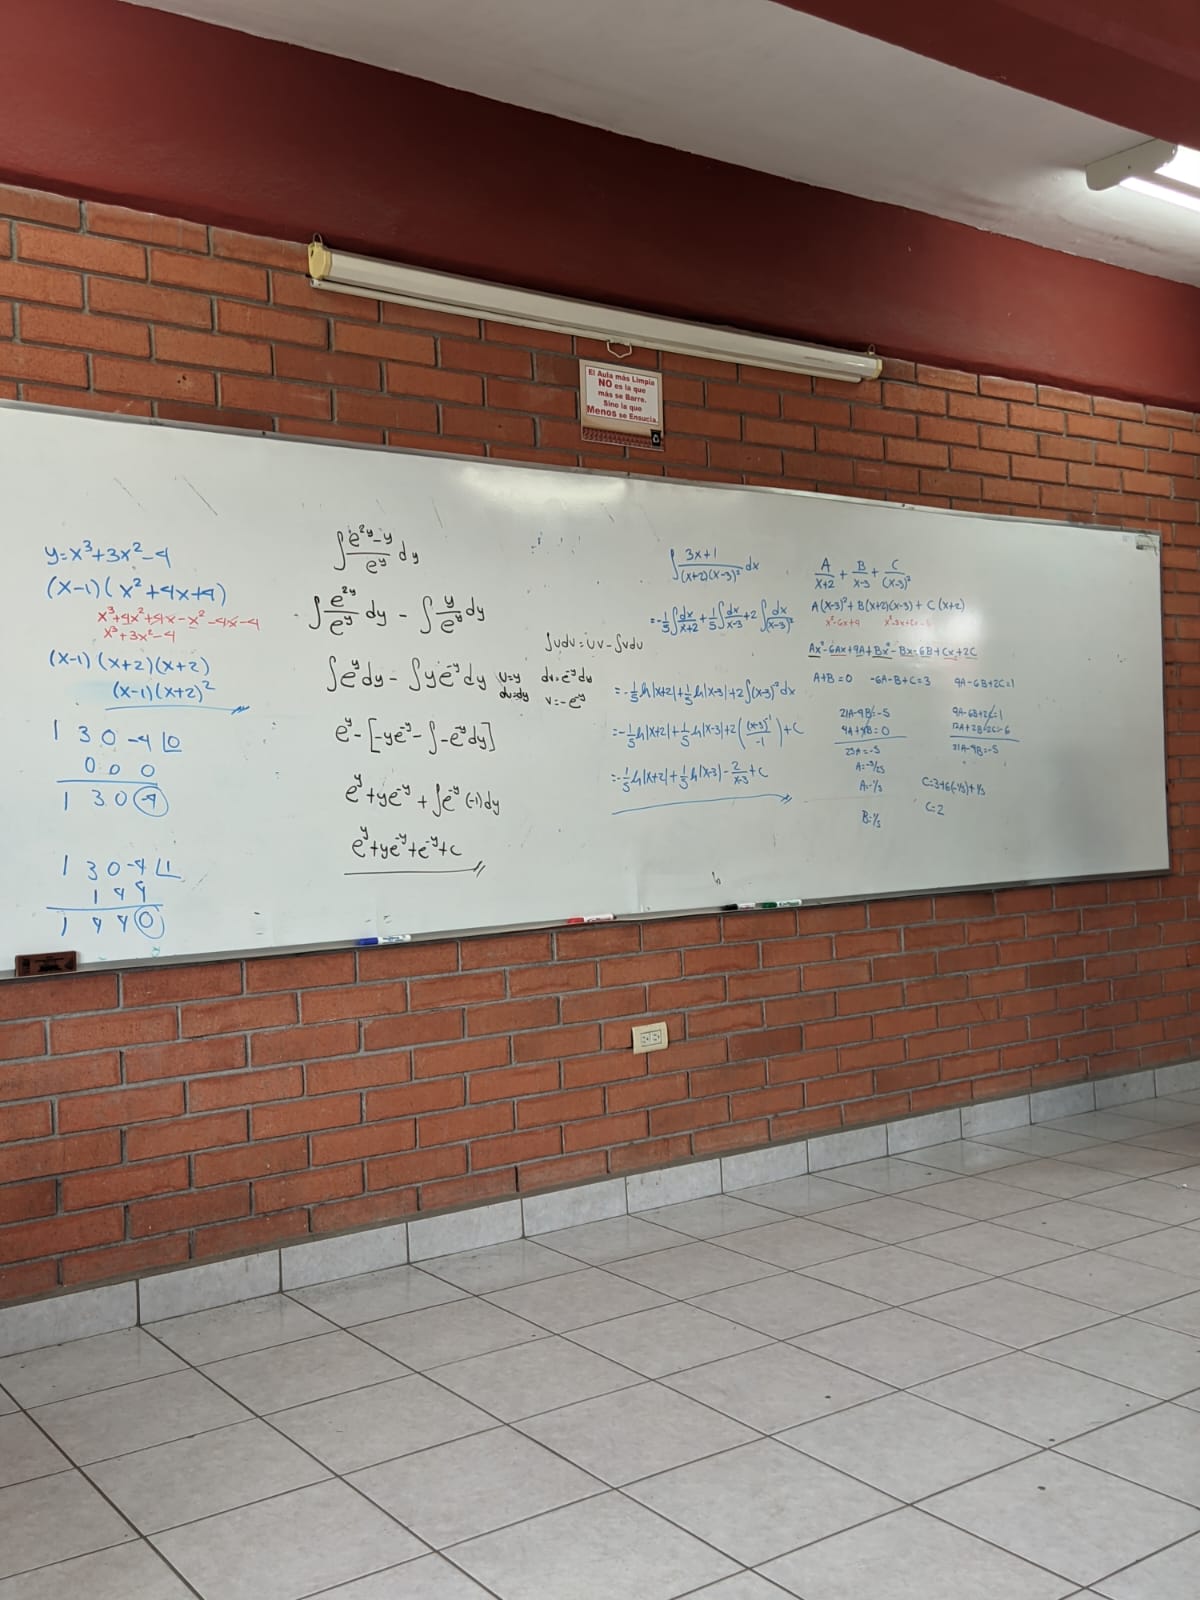 El Aula más Limpia
NO es la que
más se Barre,
Sino la que
Menos se Ensucia.
y=x³+3x²-4
(x-1)(x²+4x+4)
x³+4x²+4x-x²-4x-4
x³+3x²-4
(x-1)(x+2)(x+2)
(x-1)(x+2)²
1 3 0 -4 |0
0 0 0
1 3 0 -4
1 3 0 -4 |1
1 4 4
1 4 4 0
∫ (e^{2y}-y)/e^y dy
∫ e^{2y}/e^y dy - ∫ y/e^y dy
∫udv=uv-∫vdu
∫e^y dy - ∫ye^{-y} dy
u=y dv=e^{-y}dy
du=dy v=-e^{-y}
e^y-[-ye^{-y}-∫-e^{-y}dy]
e^y+ye^{-y}+∫e^{-y}(-1)dy
e^y+ye^{-y}+e^{-y}+c
∫ (3x+1)/((x+2)(x-3)²) dx
=-1/5∫dx/(x+2)+1/5∫dx/(x-3)+2∫dx/(x-3)²
=-1/5 ln|x+2|+1/5 ln|x-3|+2∫(x-3)^{-2}dx
=-1/5 ln|x+2|+1/5 ln|x-3|+2((x-3)^{-1}/-1)+C
=-1/5 ln|x+2|+1/5 ln|x-3|-2/(x-3)+C
A/(x+2)+B/(x-3)+C/(x-3)²
A(x-3)²+B(x+2)(x-3)+C(x+2)
x²-6x+9
Ax²-6Ax+9A+Bx²-Bx-6B+Cx+2C
A+B=0 -6A-B+C=3 9A-6B+2C=1
21A-4B=-5
4A+4B=0
25A=-5
A=-5/25
A=-1/5
B=1/5
9A-6B+2C=1
12A+2B-2C=-6
21A-4B=-5
C=3+6(-1/5)+1/5
C=2